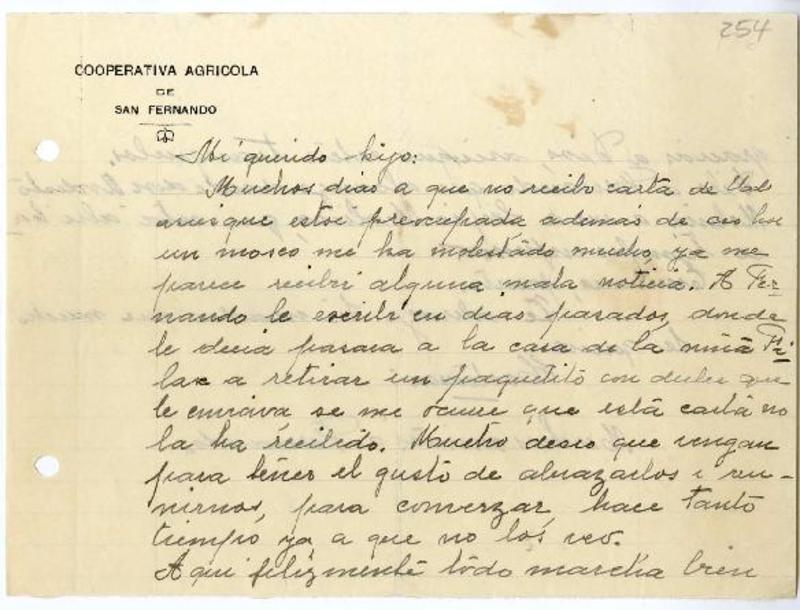 254
COOPERATIVA AGRICOLA
DE
SAN FERNANDO
Mi querido hijo:
Muchos dias a que no recibo carta de Ud
asies que estoi preocupada además de eso hoi
un mosco me ha molestado mucho, ya me
parece recibri alguna mala noticia. A Fer-
nando le escribi en dias pasados, donde
le decia pasara a la casa de la niña
a retirar un paquetito con dulce que
le enviava se me ocurre que está carta no
la ha recibido. Mucho deseo que vengan
para tener el gusto de abrazarlos i reu-
nirnos, para converzar, hace tanto
tiempo ya a que no los veo.
Aqui felizmente todo marcha bien